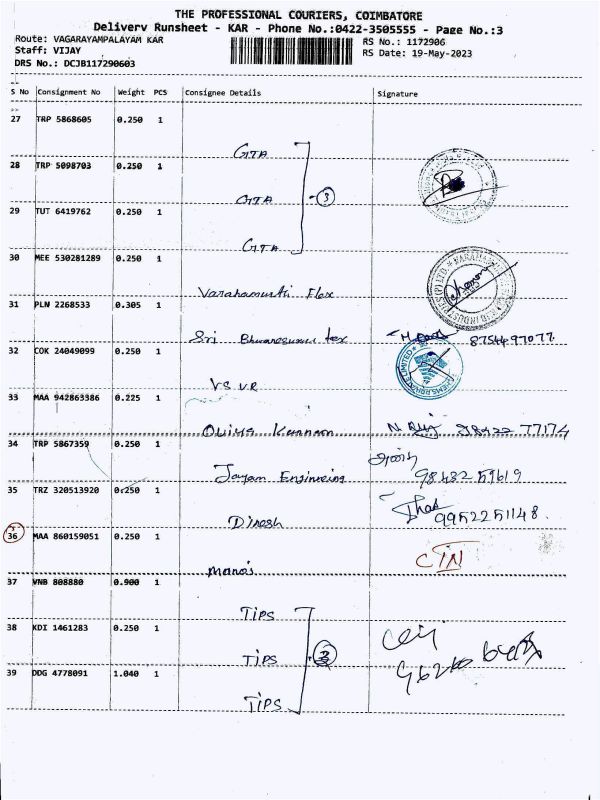 THE PROFESSIONAL COURIERS, COIMBATORE
Delivery Runsheet - KAR - Phone No.:0422-3505555 - Page No.:3
Route: VAGARAYAMPALAYAM KAR
RS No.: 1172906
Staff: VIJAY
RS Date: 19-May-2023
DRS No.: DCJB117290603
S No Consignment No Weight PCS Consignee Details Signature
27 TRP 5868605 0.250 1
GTA
28 TRP 5098703 0.250 1
GTA 3
29 TUT 6419762 0.250 1
GTA
30 MEE 530281289 0.250 1
Varahamurthi Flex
31 PLN 2268533 0.305 1
Sri Bhuvaneswari tex 8754497077
32 COK 24049099 0.250 1
VSVR
33 MAA 942863386 0.225 1
Kannan 98422 77174
34 TRP 5867359 0.250 1
Jayam Engineering 98432 59619
35 TRZ 320513920 0.250 1
Dinesh 9952251148
36 MAA 860159051 0.250 1
CIN
Manoj
37 VNB 808880 0.900 1
TIPS
38 KDI 1461283 0.250 1
TIPS 3
39 DDG 4778091 1.040 1
TIPS